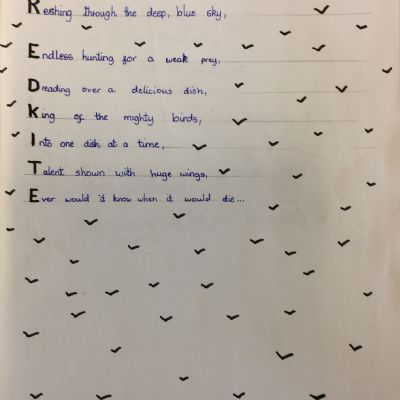 Reshing through the deep, blue sky,
Endless hunting for a weak prey,
Dreading over a delicious dish,
King of the mighty birds,
Into one dish at a time,
Talent shown with huge wings,
Ever would it know when it would die...